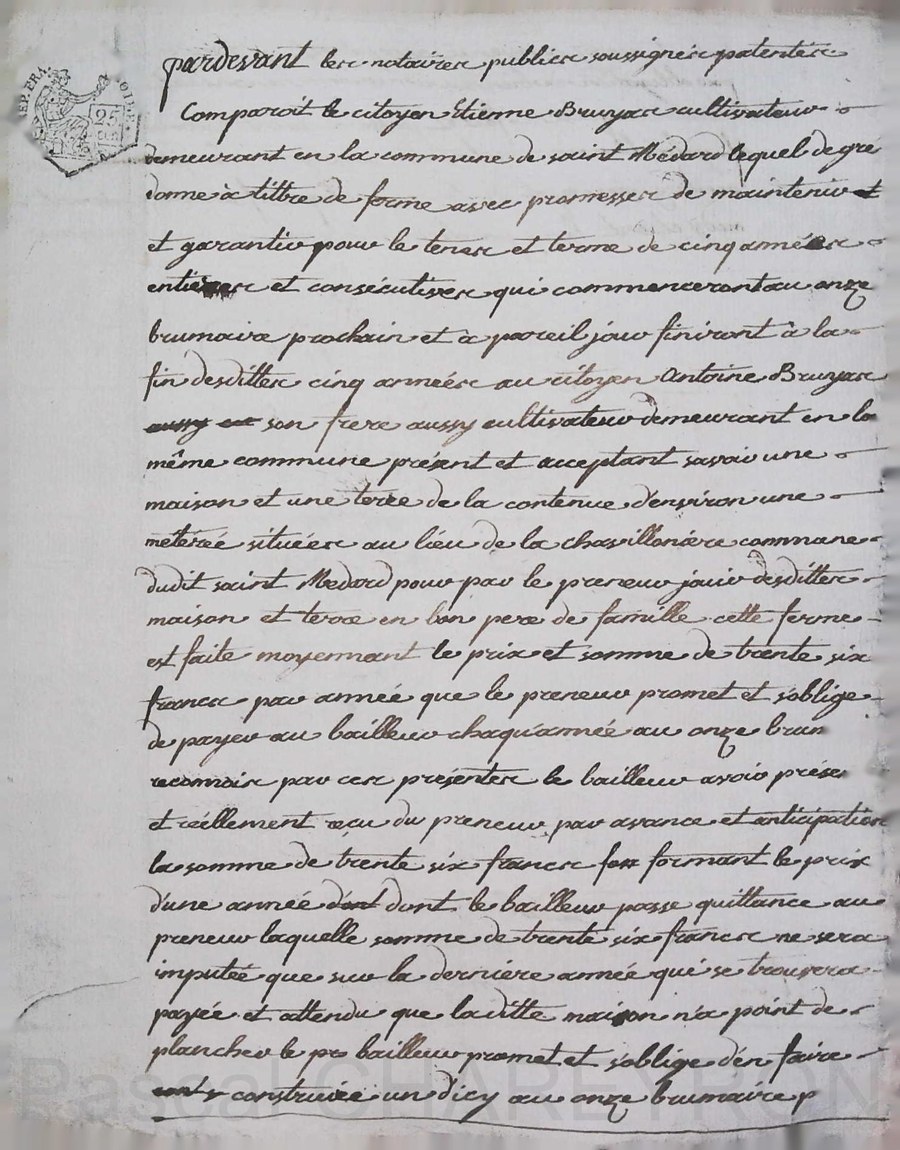 REP. FRA.
25
pardevant les notaires publics soussignés patentés
Comparoit le citoyen Etienne Bruyas cultivateur
demeurant en la commune de saint Médard lequel de gré
donne à tittre de ferme avec promesses de maintenir et
et garantir pour le tems et terme de cinq années
entieres et consécutives qui commenceront au onze
brumaire prochain et à pareil jour finiront à la
fin desdittes cinq années au citoyen Antoine Bruyas
aussy son frere aussy cultivateur demeurant en la
même commune présent et acceptant savoir une
maison et une terre de la contenue d'environ une
méterée situées au lieu de la chavillonière commune
dudit saint Medard pour par le preneur jouir desdittes
maison et terre en bon pere de famille cette ferme
est faite moyennant le prix et somme de trente six
francs par année que le preneur promet et s'oblige
de payer au bailleur chaqu'année au onze brum
reconnois par ces présentes le bailleur avoir prése
et réellement reçu du preneur par avance et anticipation
la somme de trente six francs for formant le prix
d'une année dont dont le bailleur passe quittance au
preneur laquelle somme de trente six francs ne sera
imputée que sur la derniére année qui se trouvera
payée et attendu que laditte maison n'a point de
plancher le pr bailleur promet et s'oblige d'en faire
construire un d'icy au onze brumaire p
Pascal CHARETRON